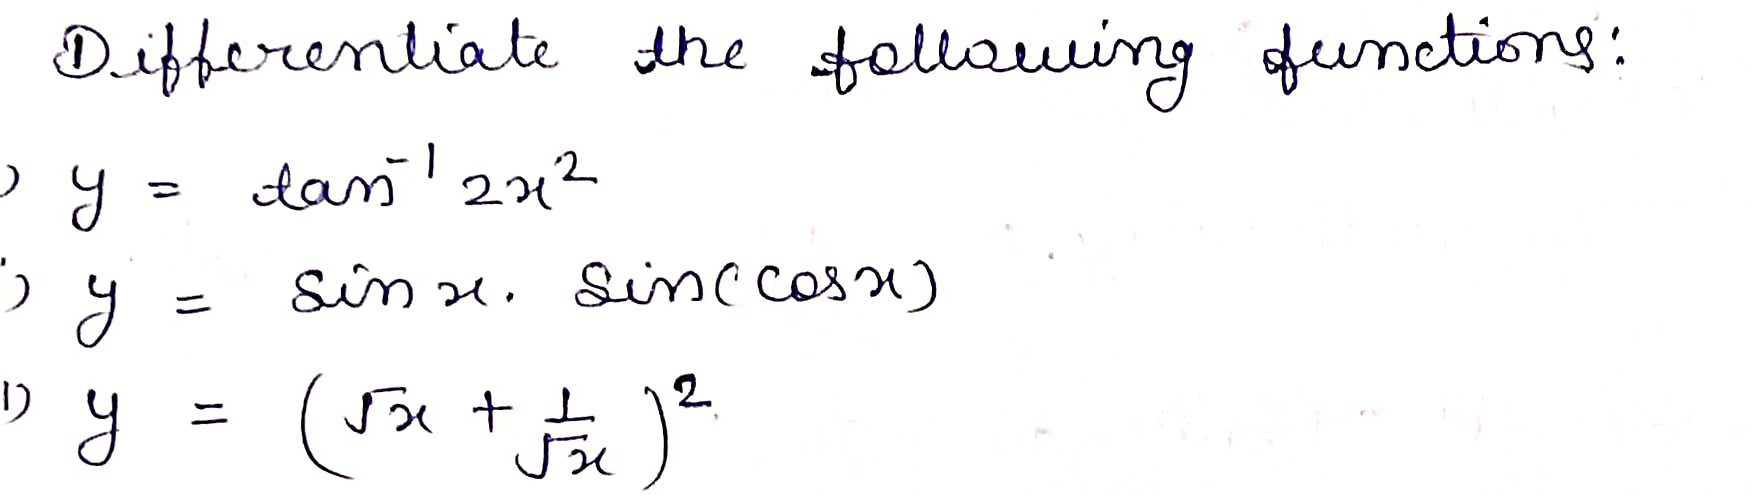 Differentiate the following functions:
) y = tan⁻¹ 2x²
) y = sin x. Sin(cosx)
1) y = (√x + 1/√x)²